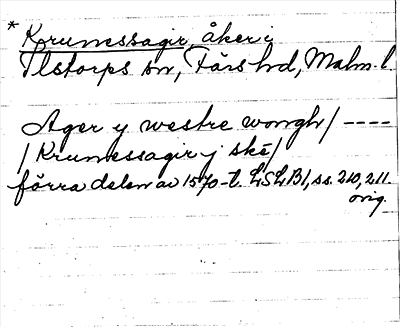 * Krumessagir, åker i
Ilstorps sn, Färs hd, Malm. l.
Ager y westre wongh / ----
/ Krumessagir j skē /
förra delen av 1570-t. LSLB 1, ss. 210, 211.
orig.